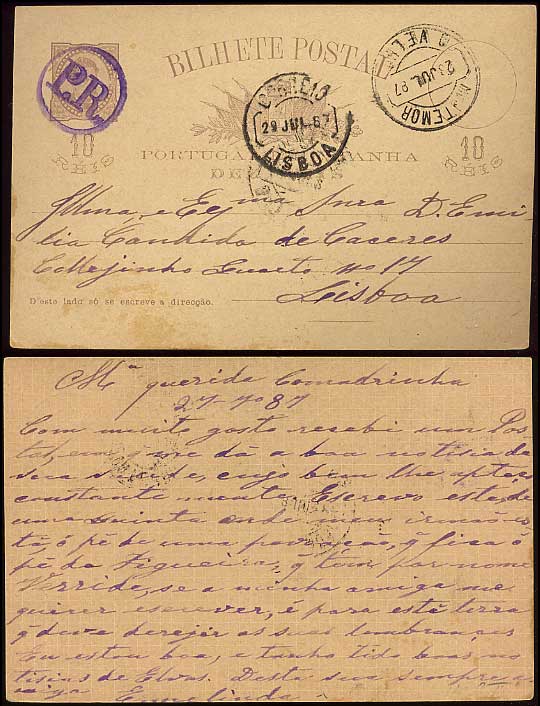 BILHETE POSTAL
P.R.
10
REIS
PORTUGAL HESPANHA
CORREIO
29 JUL. 87
LISBOA
MONTEMOR O VELHO
JUL. 87
10
REIS
Illma, e Ex ma Snra D. Emi
lia Candida de Caceres
Collejinho Quarto nº 17
D'este lado só se escreve a direcção.
Lisboa
Mª querida Comadrinha
27 7º 87
Com muito gosto recebi um Pos
tal, em que me dá a boa noticia da
sua saude, cujo bem lhe apteço
constante mente. Escrevo este de
uma quinta onde meu irmão es
tá ó pé de uma povoação, q̃ fica ó
pé da Figueira, q̃ tem por nome
Verride, se a minha amiga me
quizer escrever, é para esta terra
q̃ deve derejir as suas lembranças
Eu estou boa, e tenho tido boas no
tisias de Elvas. Desta sua sempre a
miga Ermelinda